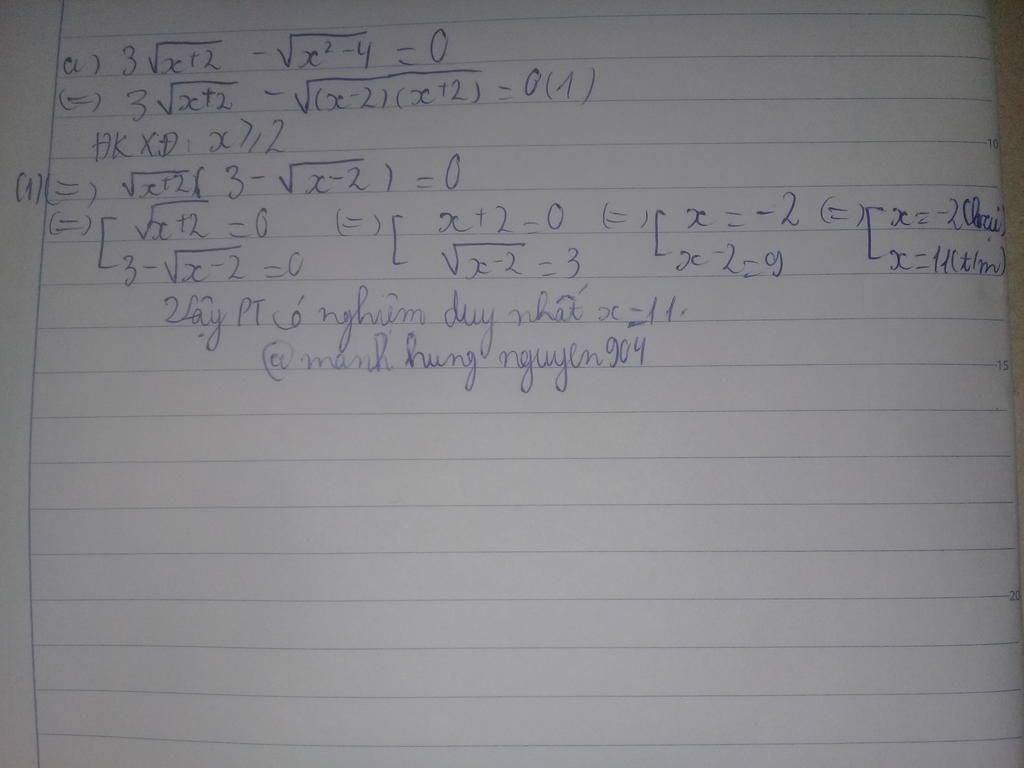 a) 3√(x+2) - √(x²-4) = 0
(=) 3√(x+2) - √((x-2)(x+2)) = 0 (1)
ĐKXĐ: x ⩾ 2
(1) (=) √(x+2)( 3 - √(x-2) ) = 0
(=) [ √(x+2) = 0 (=) [ x+2 = 0 (=) [ x = -2 (=) [ x = -2 (loại)
3 - √(x-2) = 0 √(x-2) = 3 x-2 = 9 x = 11 (t/m)
Vậy PT có nghiệm duy nhất x = 11.
@ manh hung nguyen 904
10
15
20